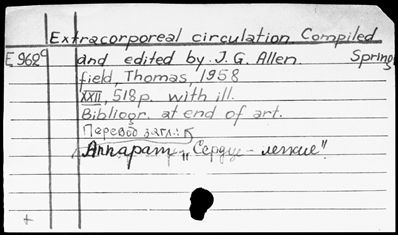 Extracorporeal circulation. Compiled
E962a and edited by J. G. Allen. Spring
field, Thomas, 1958
XXII, 518 p. with ill.
Bibliogr. at end of art.
Перевод загл.:
Аппарат „Сердце – легкие".
+